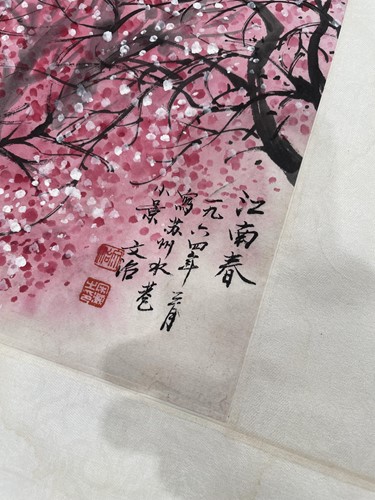 江南春
一九六四年三月
寫苏州水巷
小景
文治